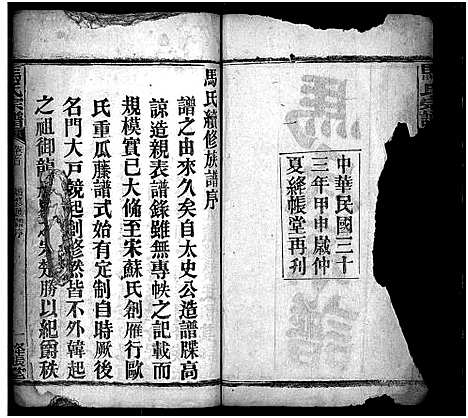 馬氏宗譜
中華民國三十
三年甲申歲仲
夏絳帳堂再刊
馬氏續修族譜序
譜之由來久矣自太史公造譜牒高
諒造親表譜錄雖無專帙之記載而
規模實已大備至宋蘇氏創雁行歐
氏重瓜藤譜式始有定制自時厥後
名門大戶競起創修然皆不外韓起
之祖御龍
勝以紀爵秩
氏宗譜